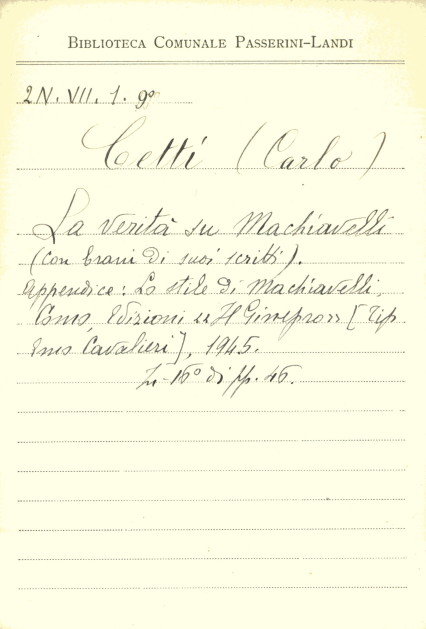 BIBLIOTECA COMUNALE PASSERINI-LANDI
2N. VII. 1. 9º
Cetti (Carlo)
La verità su Machiavelli
(con brani di suoi scritti).
Appendice: Lo stile di Machiavelli.
Como, Edizioni "Il Ginepro" [Tip.
Emo Cavalleri], 1945.
In-16° di pp. 46.